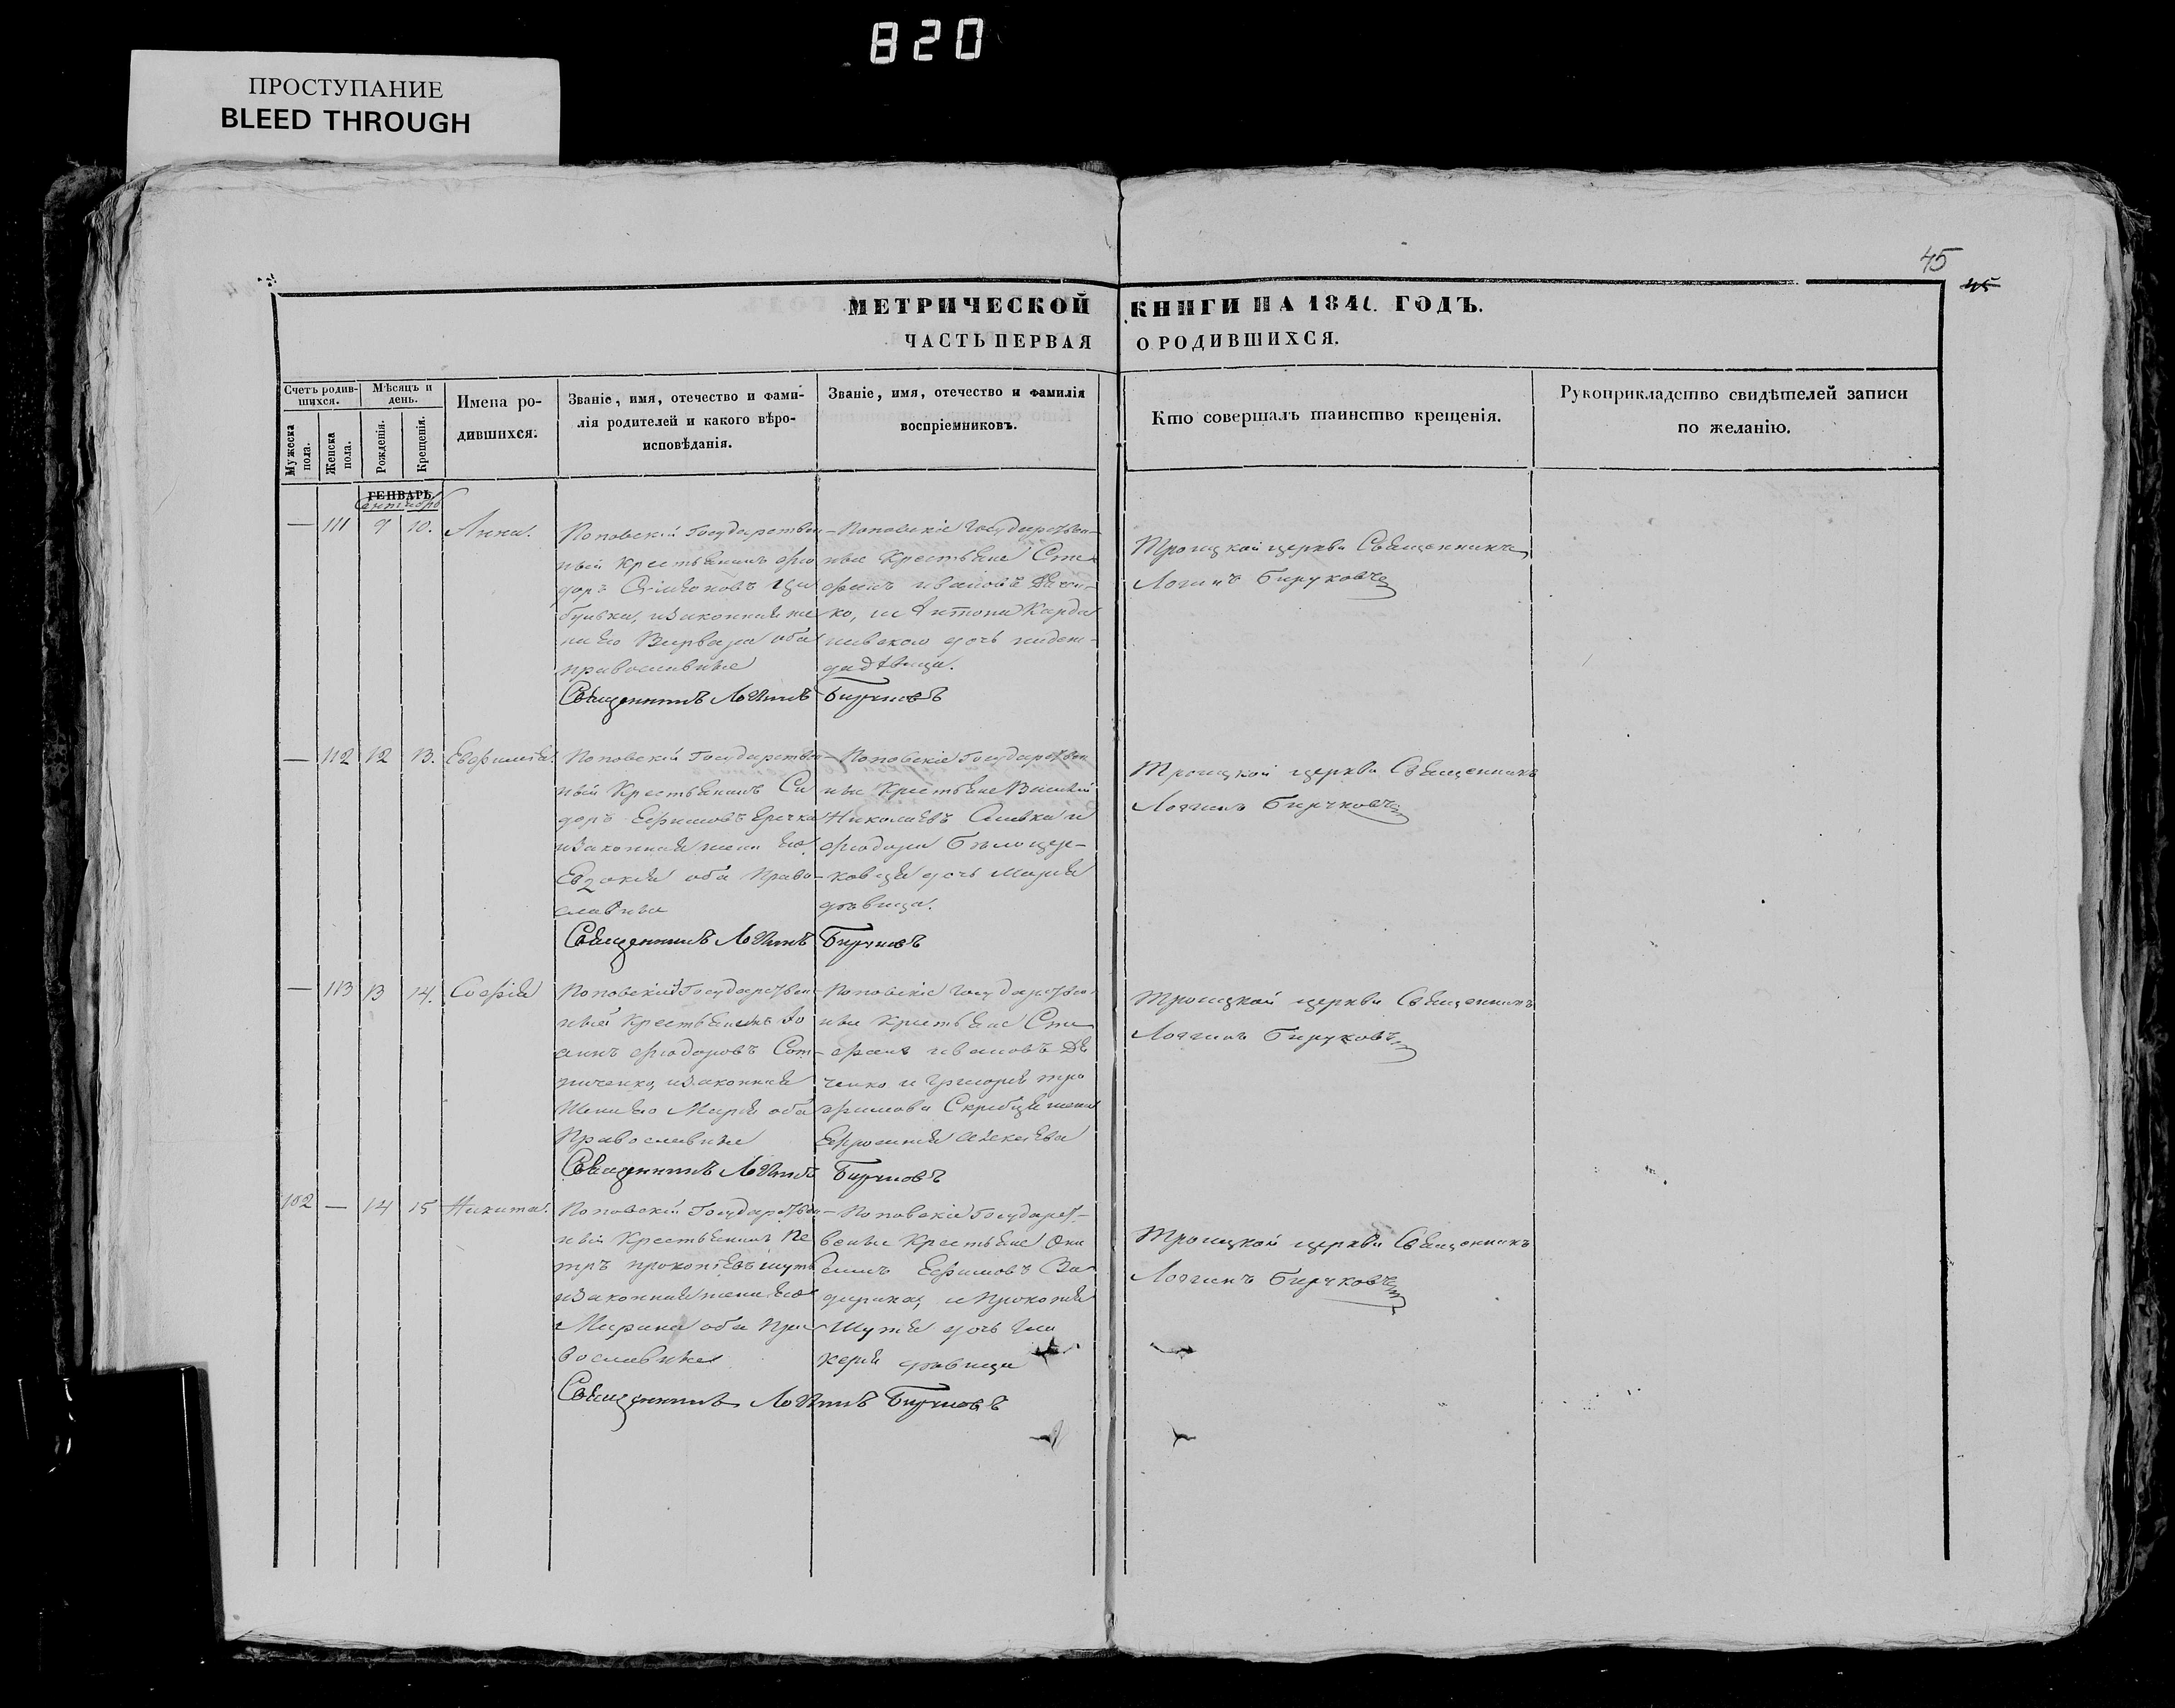 820
ПРОСТУПАНИЕ
BLEED THROUGH
45
45
МЕТРИЧЕСКОЙ КНИГИ НА 1841. ГОДЪ.
ЧАСТЬ ПЕРВАЯ О РОДИВШИХСЯ.
Счетъ родившихся.
Мужеска пола.
Женска пола.
Мѣсяцъ и день.
Рожденія.
Крещенія.
Имена родившихся.
Званіе, имя, отечество и фами-
лія родителей и какого вѣро-
исповѣданія.
Званіе, имя, отечество и фамилія
воспріемниковъ.
Кто совершалъ таинство крещенія.
Рукоприкладство свидѣтелей записи
по желанію.
ГЕНВАРЬ
Сентябрь
— 111 9 10. Анна.
Поповскій Государствен-
ный Крестьянинъ Фео
доръ
законная же
на его Варвара оба
православные
Поповскіе Государствен-
ные Крестьяне Сте
фанъ Ивановъ Дячен-
ко, и Антона
дочь
дѣвица.
Троицкой церкви Священникъ
Логинъ Бируковъ
Священникъ Логинъ Бируковъ
— 112 12 13. Евфимія.
Поповскій Государствен
ный Крестьянинъ Си
доръ Ефимовъ
и законная жена его
Евдокія оба Право-
славные
Поповскіе Государствен
ные Крестьяне Василій
Николаевъ Сливка и
Феодора Бѣлоцер-
ковца дочь Марія
дѣвица.
Троицкой церкви Священникъ
Логгинъ Бируковъ
Священникъ Логинъ Бируковъ
— 113 13 14. Софія
Поповскій Государствен
ный Крестьянинъ Іо
аннъ Феодоровъ Сот-
ниченко, и законная
жена его Марія оба
Православные
Поповскіе Государствен
ные Крестьяне Сте
фанъ Ивановъ Дя
ченко и Григорія Тро
фимова жена
Ефросинія Алексѣева
Троицкой церкви Священникъ
Логгинъ Бируковъ
Священникъ Логинъ Бируковъ
102 — 14 15 Никита.
Поповскій Государствен
ный Крестьянинъ Пе
тръ Прокопіевъ Шуть
и законная жена его
Марина оба Пра
вославные
Поповскіе Государст-
венные Крестьяне Они
симъ Ефимовъ
и Прокопія
Шутя дочь Гли
керія дѣвица
Троицкой церкви Священникъ
Логгинъ Бируковъ
Священникъ Логинъ Бируковъ